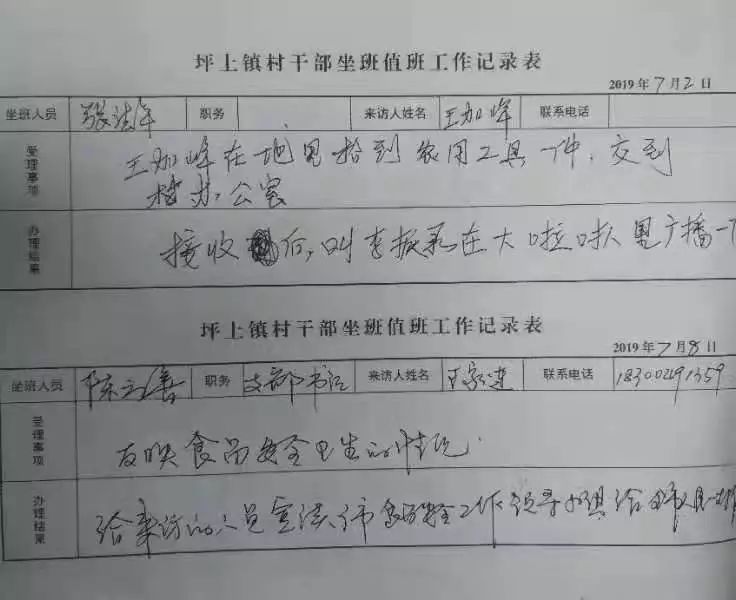 坪上镇村干部坐班值班工作记录表
2019年7月2日
坐班人员 张法年 职务 来访人姓名 王加峰 联系电话
受理事项 王加峰在地里拾到农用工具一件，交到
村办公室
办理结果 接收后，叫李振永在大喇叭里广播一下
坪上镇村干部坐班值班工作记录表
2019年7月8日
坐班人员 陈 职务 支部书记 来访人姓名 联系电话 18300291359
受理事项 反映食品安全卫生的情况.
办理结果 给来访的人员宣传 市食品安全工作领导小组给全市人民